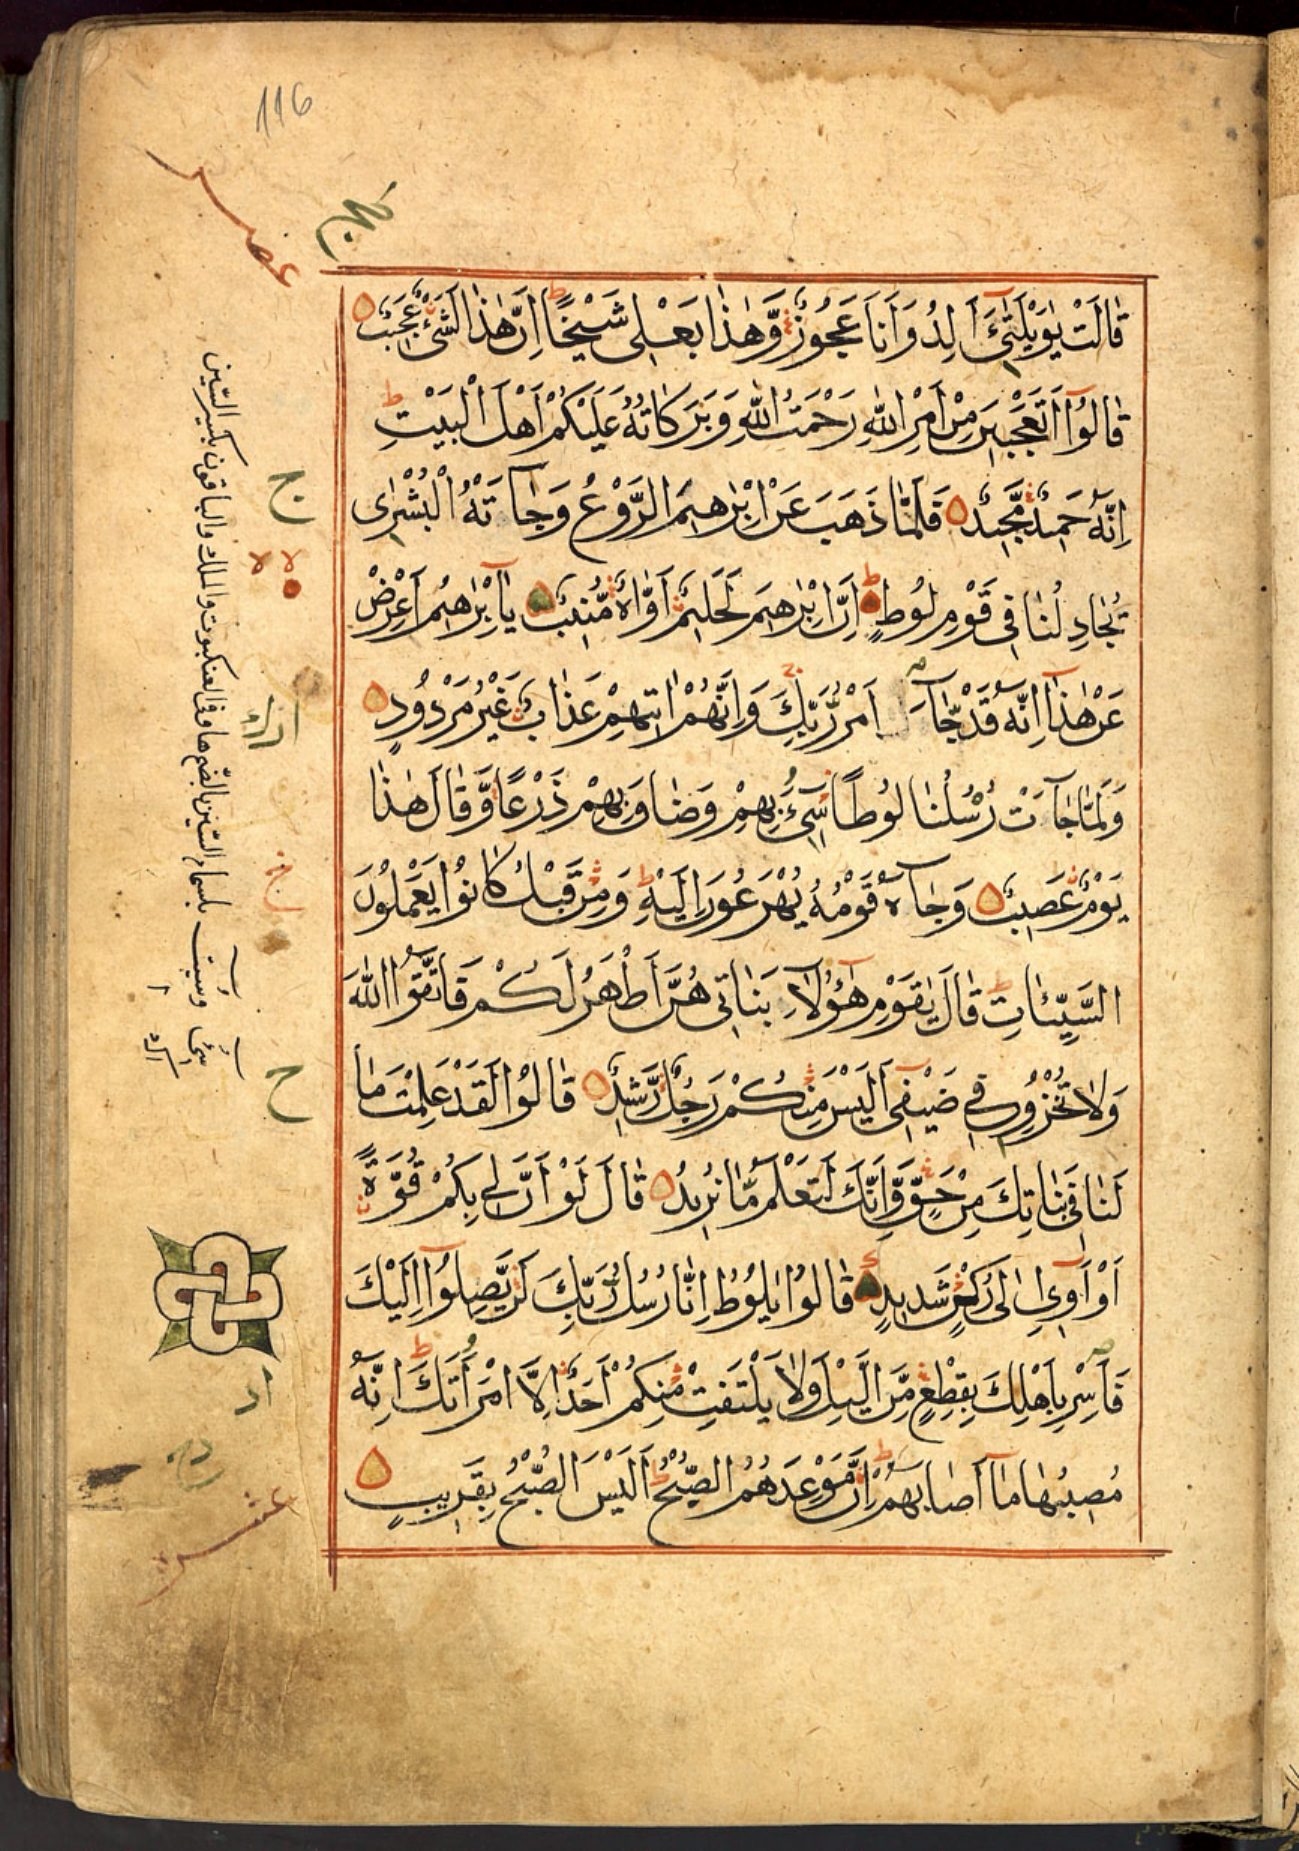 116
قَالَتْ يٰوَيْلَتٰىٓ ءَاَلِدُ وَاَنَا۠ عَجُوْزٌ وَّهٰذَا بَعْلِى شَيْخًا اِنَّ هٰذَا لَشَىْءٌ عَجِيْبٌ
قَالُوْٓا اَتَعْجَبِيْنَ مِنْ اَمْرِ اللّٰهِ رَحْمَتُ اللّٰهِ وَبَرَكَاتُهُ عَلَيْكُمْ اَهْلَ الْبَيْتِ
اِنَّهُ حَمِيْدٌ مَّجِيْدٌ فَلَمَّا ذَهَبَ عَنْ اِبْرٰهِيْمَ الرَّوْعُ وَجَآءَتْهُ الْبُشْرٰى
يُجَادِلُنَا فِى قَوْمِ لُوْطٍ اِنَّ اِبْرٰهِيْمَ لَحَلِيْمٌ اَوَّاهٌ مُّنِيْبٌ يَآ اِبْرٰهِيْمُ اَعْرِضْ
عَنْ هٰذَا اِنَّهُ قَدْ جَآءَ اَمْرُ رَبِّكَ وَاِنَّهُمْ اٰتِيْهِمْ عَذَابٌ غَيْرُ مَرْدُوْدٍ
وَلَمَّا جَآءَتْ رُسُلُنَا لُوْطًا سِىْٓءَ بِهِمْ وَضَاقَ بِهِمْ ذَرْعًا وَّقَالَ هٰذَا
يَوْمٌ عَصِيْبٌ وَجَآءَهُ قَوْمُهُ يُهْرَعُوْنَ اِلَيْهِ وَمِنْ قَبْلُ كَانُوْا يَعْمَلُوْنَ
السَّيِّئَاتِ قَالَ يٰقَوْمِ هٰٓؤُلَآءِ بَنَاتِى هُنَّ اَطْهَرُ لَكُمْ فَاتَّقُوا اللّٰهَ
وَلَا تُخْزُوْنِ فِى ضَيْفِىٓ اَلَيْسَ مِنْكُمْ رَجُلٌ رَّشِيْدٌ قَالُوْا لَقَدْ عَلِمْتَ مَا
لَنَا فِى بَنَاتِكَ مِنْ حَقٍّ وَّاِنَّكَ لَتَعْلَمُ مَا نُرِيْدُ قَالَ لَوْ اَنَّ لِى بِكُمْ قُوَّةً
اَوْ اٰوِىٓ اِلٰى رُكْنٍ شَدِيْدٍ قَالُوْا يٰلُوْطُ اِنَّا رُسُلُ رَبِّكَ لَنْ يَّصِلُوْٓا اِلَيْكَ
فَاَسْرِ بِاَهْلِكَ بِقِطْعٍ مِّنَ الَّيْلِ وَلَا يَلْتَفِتْ مِنْكُمْ اَحَدٌ اِلَّا امْرَاَتَكَ اِنَّهُ
مُصِيْبُهَا مَآ اَصَابَهُمْ اِنَّ مَوْعِدَهُمُ الصُّبْحُ اَلَيْسَ الصُّبْحُ بِقَرِيْبٍ
ج
ح
عشر